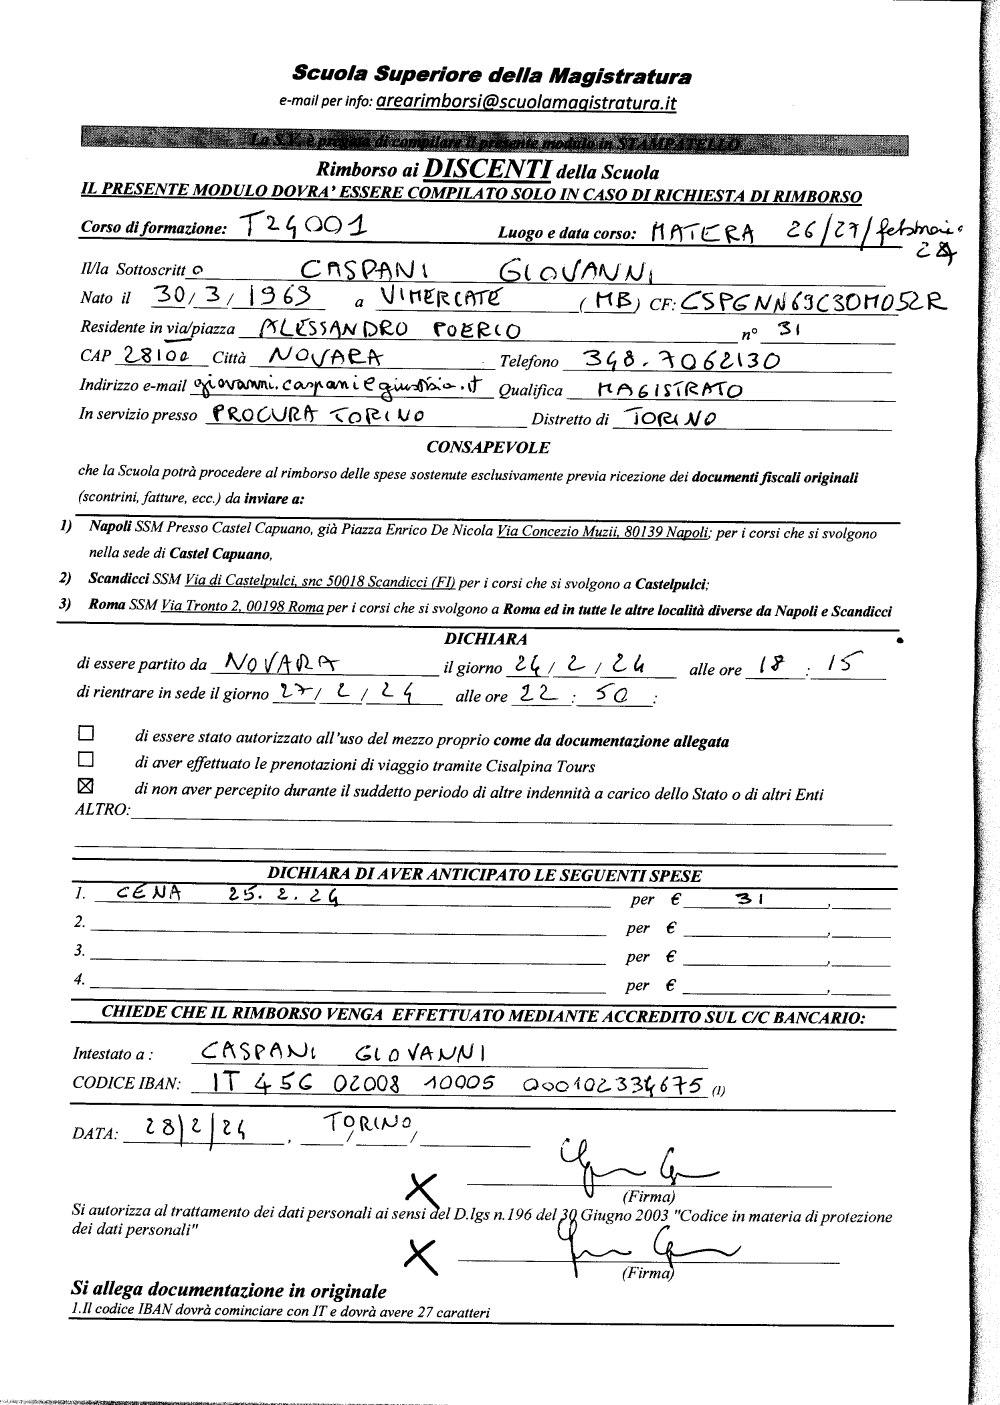 Scuola Superiore della Magistratura
e-mail per info: arearimborsi@scuolamagistratura.it
La S.V. è pregata di compilare il presente modulo in STAMPATELLO
Rimborso ai DISCENTI della Scuola
IL PRESENTE MODULO DOVRA' ESSERE COMPILATO SOLO IN CASO DI RICHIESTA DI RIMBORSO
Corso di formazione: T24001 Luogo e data corso: MATERA 26/27/febbraio 24
Il/la Sottoscritt o CASPANI GIOVANNI
Nato il 30/3/1963 a VIMERCATE (MB) CF: CSPGNN63C30M052R
Residente in via/piazza ALESSANDRO POERIO n° 31
CAP 28100 Città NOVARA Telefono 348.7062130
Indirizzo e-mail giovanni.caspani@giustizia.it Qualifica MAGISTRATO
In servizio presso PROCURA TORINO Distretto di TORINO
CONSAPEVOLE
che la Scuola potrà procedere al rimborso delle spese sostenute esclusivamente previa ricezione dei documenti fiscali originali
(scontrini, fatture, ecc.) da inviare a:
1) Napoli SSM Presso Castel Capuano, già Piazza Enrico De Nicola Via Concezio Muzii, 80139 Napoli; per i corsi che si svolgono
nella sede di Castel Capuano,
2) Scandicci SSM Via di Castelpulci, snc 50018 Scandicci (FI) per i corsi che si svolgono a Castelpulci;
3) Roma SSM Via Tronto 2, 00198 Roma per i corsi che si svolgono a Roma ed in tutte le altre località diverse da Napoli e Scandicci
DICHIARA
di essere partito da NOVARA il giorno 24/2/24 alle ore 18:15
di rientrare in sede il giorno 27/2/24 alle ore 22:50:
di essere stato autorizzato all'uso del mezzo proprio come da documentazione allegata
di aver effettuato le prenotazioni di viaggio tramite Cisalpina Tours
di non aver percepito durante il suddetto periodo di altre indennità a carico dello Stato o di altri Enti
ALTRO:
DICHIARA DI AVER ANTICIPATO LE SEGUENTI SPESE
1. CENA 25.2.24 per € 31 ,
2. per € ,
3. per € ,
4. per € ,
CHIEDE CHE IL RIMBORSO VENGA EFFETTUATO MEDIANTE ACCREDITO SUL C/C BANCARIO:
Intestato a : CASPANI GIOVANNI
CODICE IBAN: IT 45G 02008 10005 000102334675 (1)
DATA: 28/2/24 , TORINO / /
(Firma)
Si autorizza al trattamento dei dati personali ai sensi del D.lgs n.196 del 30 Giugno 2003 "Codice in materia di protezione
dei dati personali"
(Firma)
Si allega documentazione in originale
1.Il codice IBAN dovrà cominciare con IT e dovrà avere 27 caratteri